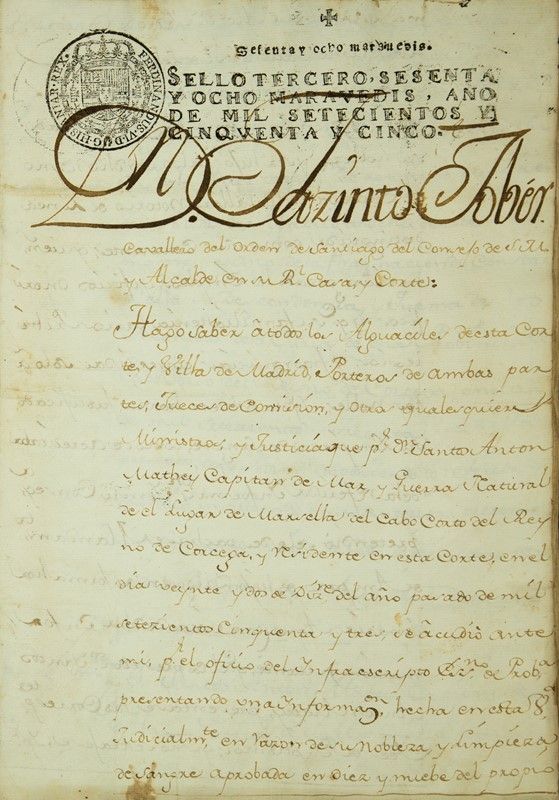 Sesenta y ocho maravedis.
SELLO TERCERO, SESENTA
Y OCHO MARAVEDIS, AÑO
DE MIL SETECIENTOS Y
CINQVENTA Y CINCO.
FERDINANDUS VI D G HISPANIAR REX
D. Jazinto de Tobér
Cavallero del orden de Santiago del Consejo de S. M.
y Alcalde en su Rl. Casa, y Corte:
Hago saber â todos los Alguaciles de esta Cor
te, y Villa de Madrid, Porteros de ambas par
tes, Jueces de Comision, y otros qualesquier
Ministros, y Justicias que pr. Dn. Santo Anton
Mathey Capitan de Mar, y Guerra Natural
de el Lugar de Marsella del Cabo Corto del Rey
no de Corcega, y Residente en esta Corte, en el
dia veynte y dos de Dizre. del año pasado de mil
setezientos Cinquenta y tres, se acudiò ante
mi, pr. el oficio del Infraescripto Esno. de Proba
presentando una Informazn. hecha en esta Va.
Judicialmte. en razon de su Nobleza y Limpieza
de Sangre aprobada en diez y nuebe del propio